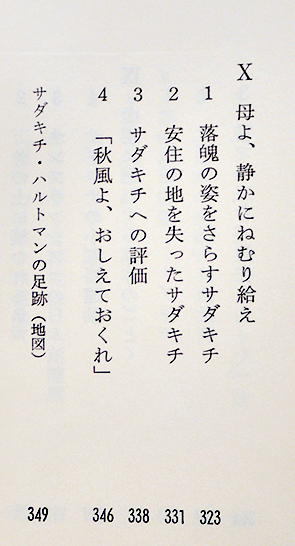 X 母よ、静かにねむり給え
1 落魄の姿をさらすサダキチ 323
2 安住の地を失ったサダキチ 331
3 サダキチへの評価 338
4 「秋風よ、おしえておくれ」 346
サダキチ・ハルトマンの足跡（地図） 349